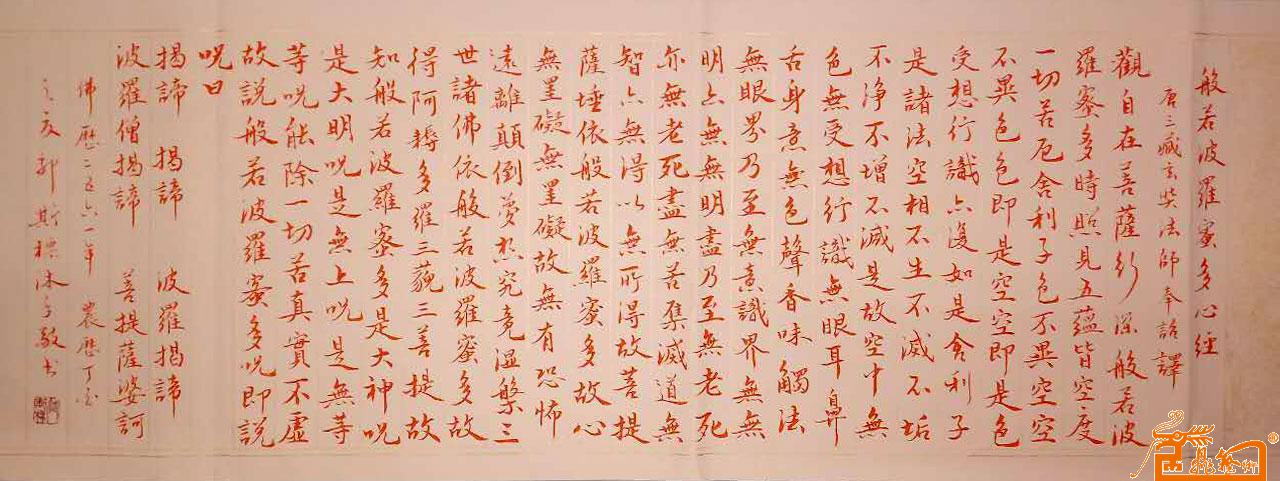 般若波羅蜜多心經
唐三藏玄奘法師奉詔譯
觀自在菩薩行深般若波
羅蜜多時照見五蘊皆空度
一切苦厄舍利子色不異空空
不異色色即是空空即是色
受想行識亦復如是舍利子
是諸法空相不生不滅不垢
不淨不增不減是故空中無
色無受想行識無眼耳鼻
舌身意無色聲香味觸法
無眼界乃至無意識界無無
明亦無無明盡乃至無老死
亦無老死盡無苦集滅道無
智亦無得以無所得故菩提
薩埵依般若波羅蜜多故心
無罣礙無罣礙故無有恐怖
遠離顛倒夢想究竟涅槃三
世諸佛依般若波羅蜜多故
得阿耨多羅三藐三菩提故
知般若波羅蜜多是大神呪
是大明呪是無上呪是無等
等呪能除一切苦真實不虛
故說般若波羅蜜多呪即說
呪曰
揭諦 揭諦 波羅揭諦
波羅僧揭諦 菩提薩婆訶
佛歷二五六一年 農歷丁酉
之友郭斯標沐手敬書